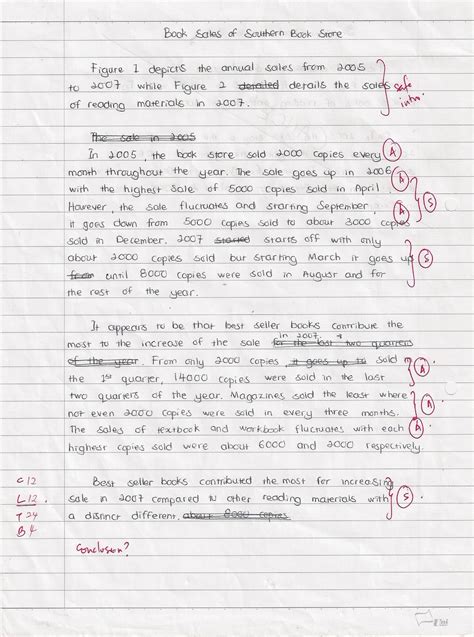 Book Sales of Southern Book Store
Figure 1 depicts the annual sales from 2005
to 2007 while Figure 2 detailed details the sales
of reading materials in 2007.
safe
intro.
The sale in 2005
In 2005, the book store sold 2000 copies every A
month throughout the year. The sale goes up in 2006
with the highest sale of 5000 copies sold in April A
However, the sale fluctuates and starting September, A S
it goes down from 5000 copies sold to about 3000 copies
sold in December. 2007 started starts off with only
about 2000 copies sold but starting March it goes up S
from until 8000 copies were sold in August and for
the rest of the year.
It appears to be that best seller books contribute the
in 2007.
most to the increase of the sale for the last two quarters
of the year. From only 2000 copies, it goes up to sold in
the 1st quarter, 14000 copies were sold in the last A
two quarters of the year. Magazines sold the least where
not even 2000 copies were sold in every three months. A
The sales of textbook and workbook fluctuates with each A
highest copies sold were about 6000 and 2000 respectively.
C12
L12
T24
B4
Best seller books contributed the most for increasing
sale in 2007 compared to other reading materials with S
a distinct different. about 8000 copies
Conclusion?